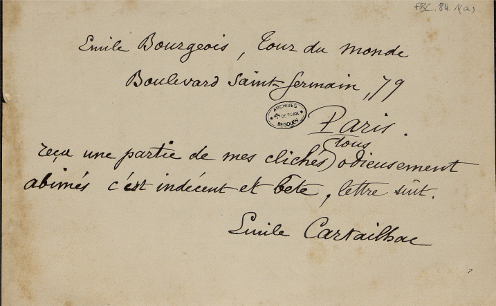 FBC. 84
Emile Bourgeois, Tour du monde
Boulevard Saint-Germain, 79
ARCHIVES
BEGOUEN
Paris.
(tous)
reçu une partie de mes clichés odieusement
abimés c'est indécent et bête, lettre suit.
Emile Cartailhac